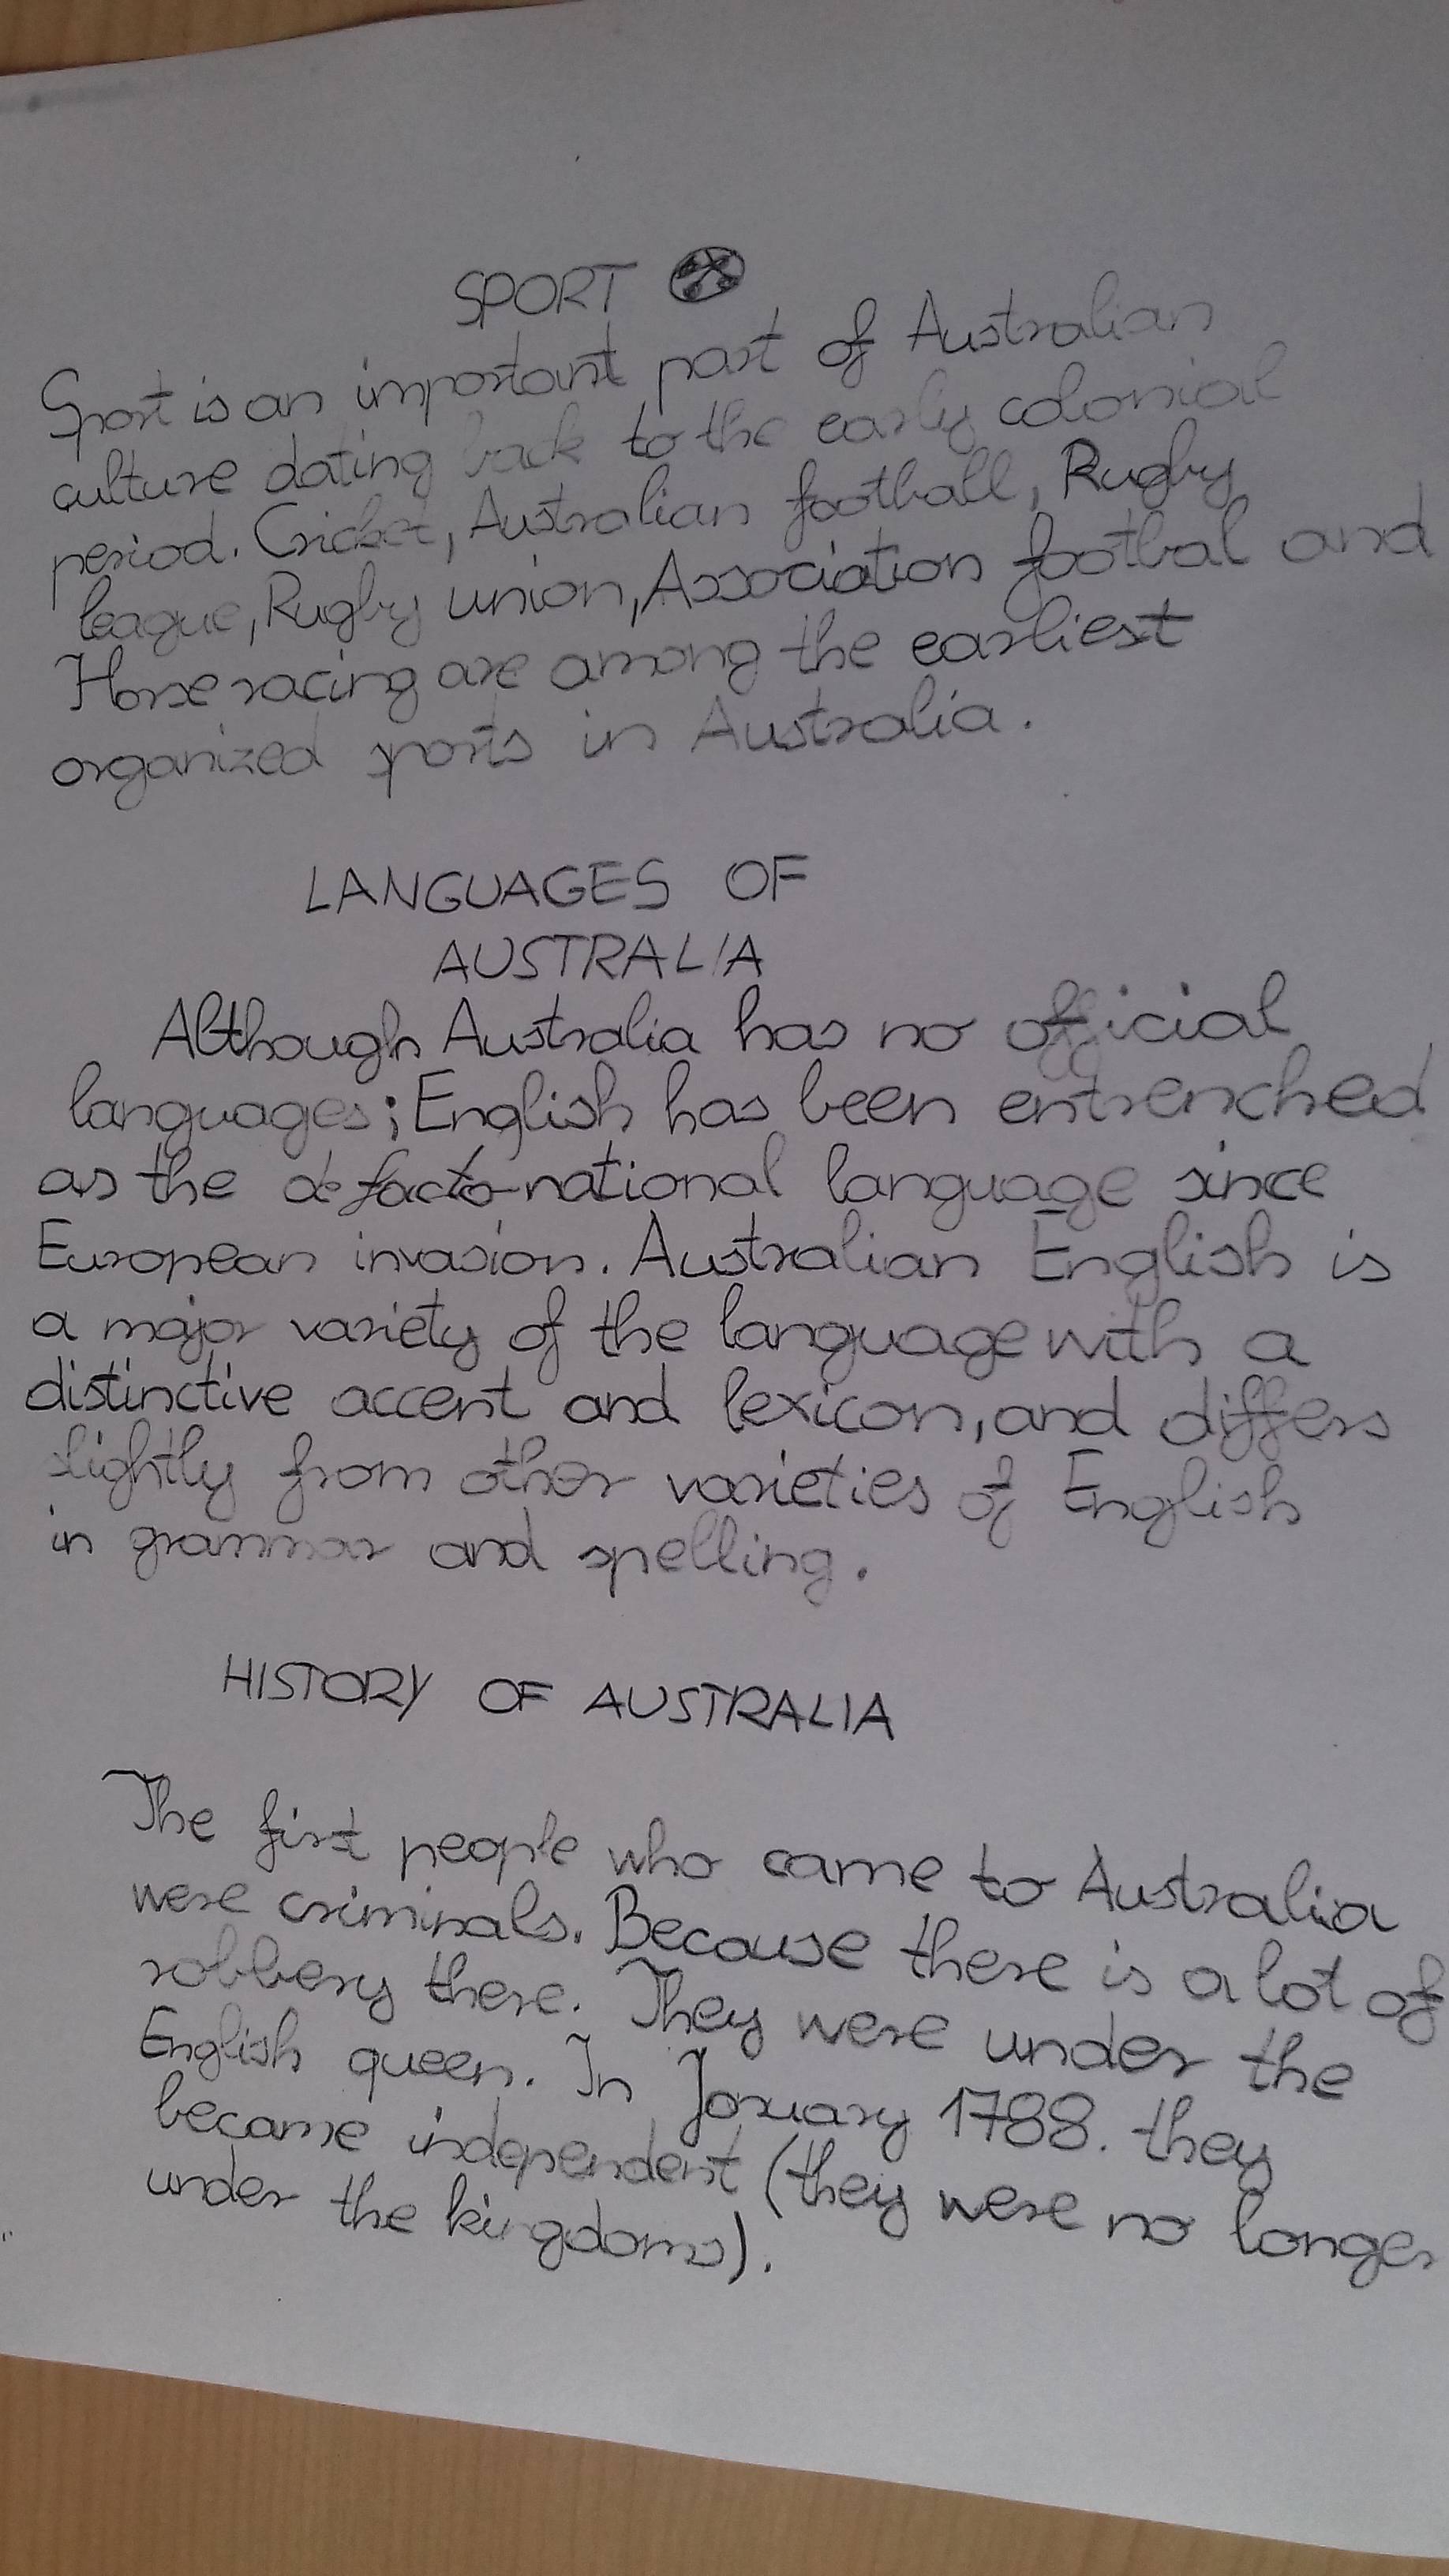 SPORT
Sport is an important part of Australian
culture dating back to the early colonial
period. Cricket, Australian football, Rugby
league, Rugby union, Association footbal and
Horse racing are among the earliest
organized sports in Australia.
LANGUAGES OF
AUSTRALIA
Although Australia has no official
languages; English has been entrenched
as the de facto national language since
European invasion. Australian English is
a major variety of the language with a
distinctive accent and lexicon, and differs
slightly from other varieties of English
in grammar and spelling.
HISTORY OF AUSTRALIA
The first people who came to Australia
were criminals. Because there is a lot of
robbery there. They were under the
English queen. In January 1788. they
became independent (they were no longer
under the kingdoms).